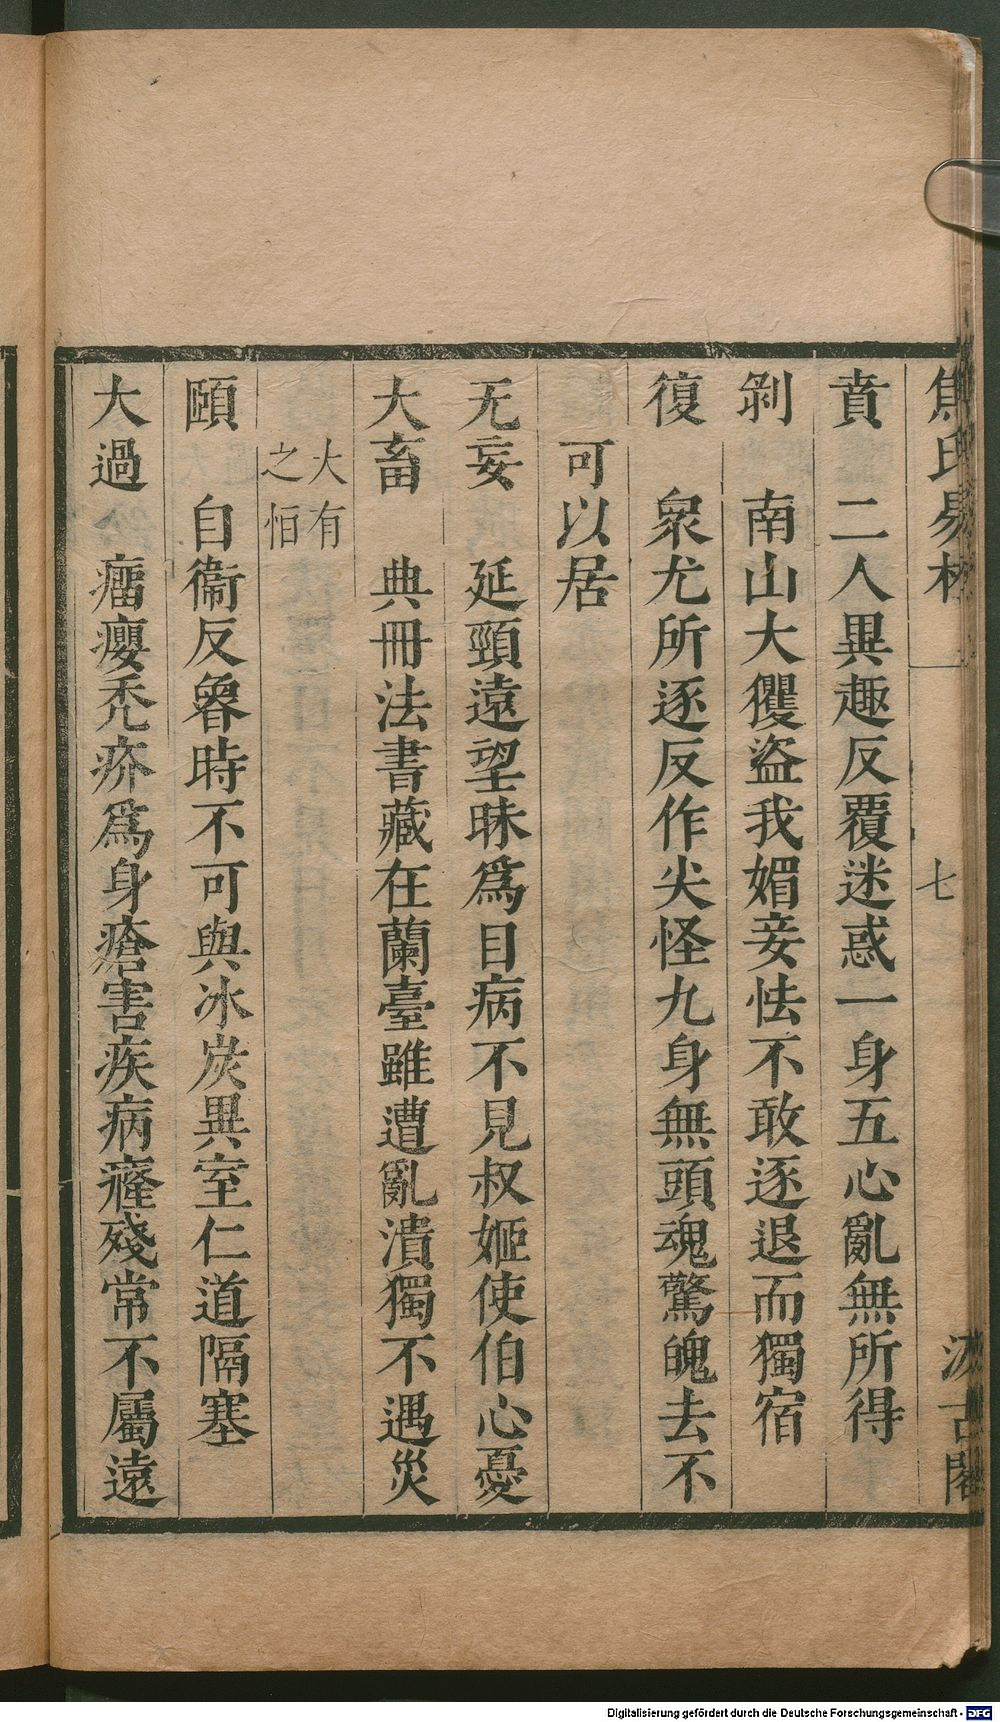 焦氏易林 一 七 汲古閣
賁 二人異趣反覆迷惑一身五心亂無所得
剝 南山大玃盜我媚妾怯不敢逐退而獨宿
復 衆尤所逐反作尖怪九身無頭魂驚魄去不
可以居
无妄 延頸遠望昧爲目病不見叔姬使伯心憂
大畜 典冊法書藏在蘭臺雖遭亂潰獨不遇災
大有
之怕
頤 自衞反魯時不可與冰炭異室仁道隔塞
大過 癗癭禿疥爲身瘡害疾病癃殘常不屬遠
Digitalisierung gefördert durch die Deutsche Forschungsgemeinschaft - DFG